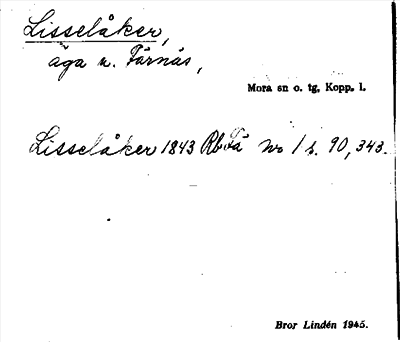 Lisselåker,
äga u. Färnäs,
Mora sn o. tg, Kopp. l.
Lisselåker 1843 Rb Fä no 1 s. 90, 343.
Bror Lindén 1945.